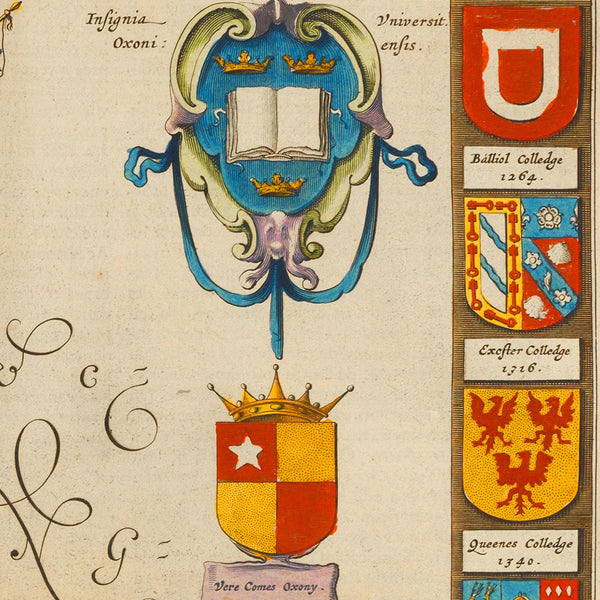 Insignia
Universit.
Oxoni:
ensis.
Balliol Colledge
1264.
Excester Colledge
1316.
Queenes Colledge
1340.
c-
G-
Vere Comes Oxony.